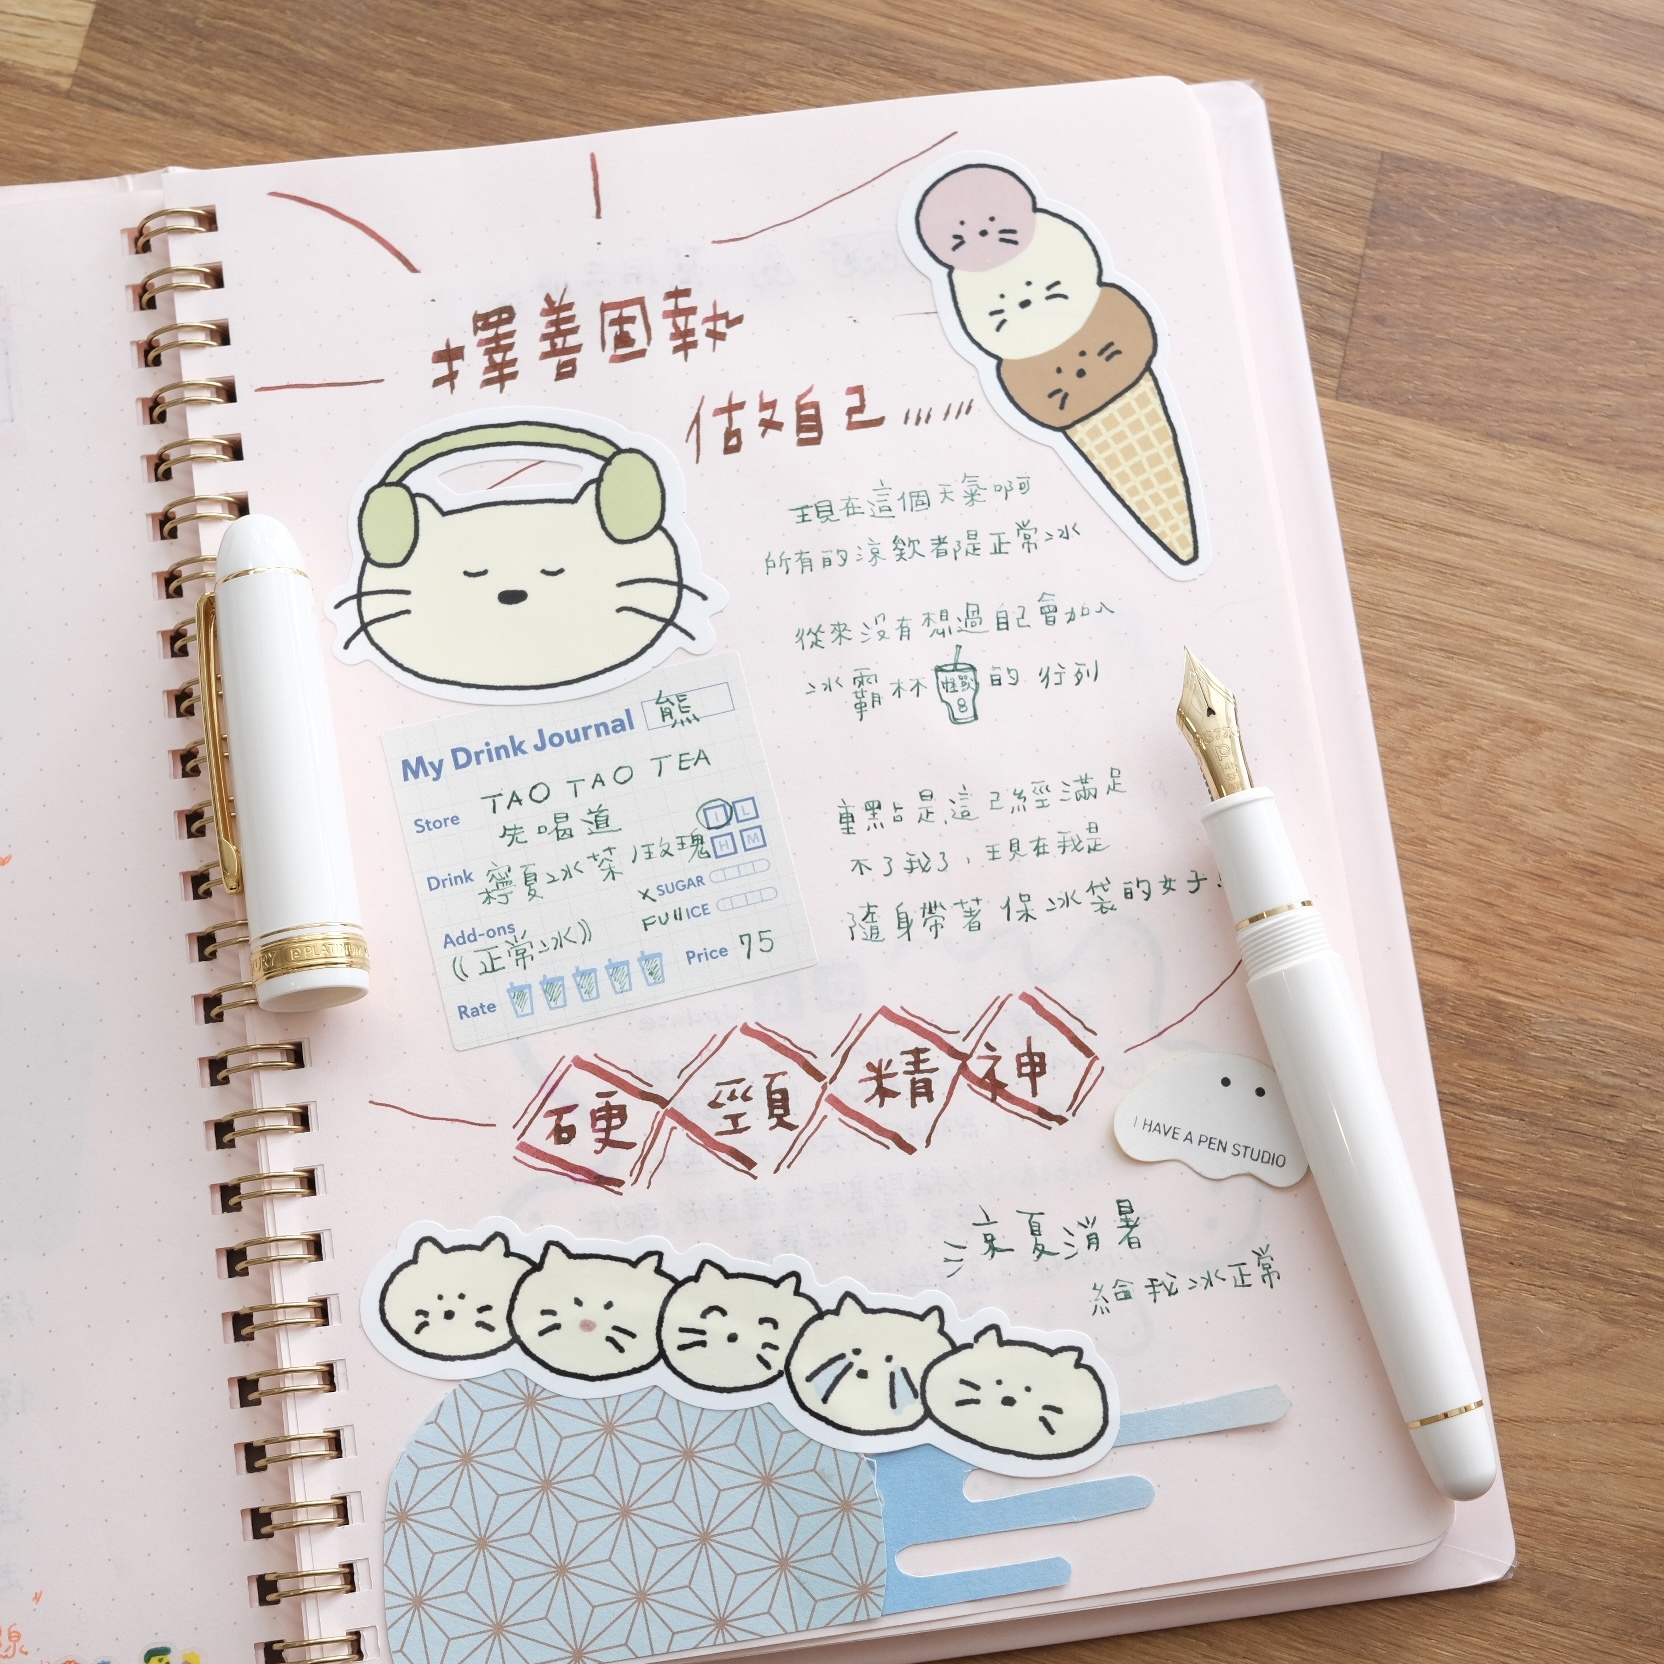 擇善固執
做自己......
現在這個天氣啊
所有的涼飲都是正常冰
從來沒有想過自己會加入
冰霸杯的行列
重點是這已經滿足
不了我了，現在我是
隨身帶著保冰袋的女子！
My Drink Journal 熊
Store TAO TAO TEA
先喝道
I L
H M
Drink 檸夏冰茶/玫瑰
X SUGAR
Full ICE
Add-ons
((正常冰))
Rate
Price 75
硬頸精神
I HAVE A PEN STUDIO
涼夏消暑
給我冰正常
PLATINUM